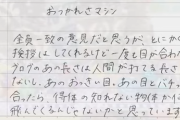 おっかれさマシン
全員一致の意見だと思うが、とにかく
挨拶はしてくれるけど一度も目が合わ
ブログのあの長さは人間が打てる長さ
ないし、あのおっきい目。あの目とバチッ
合ったら、得体の知れない物体が
飛んでくるんじゃないかと思っています